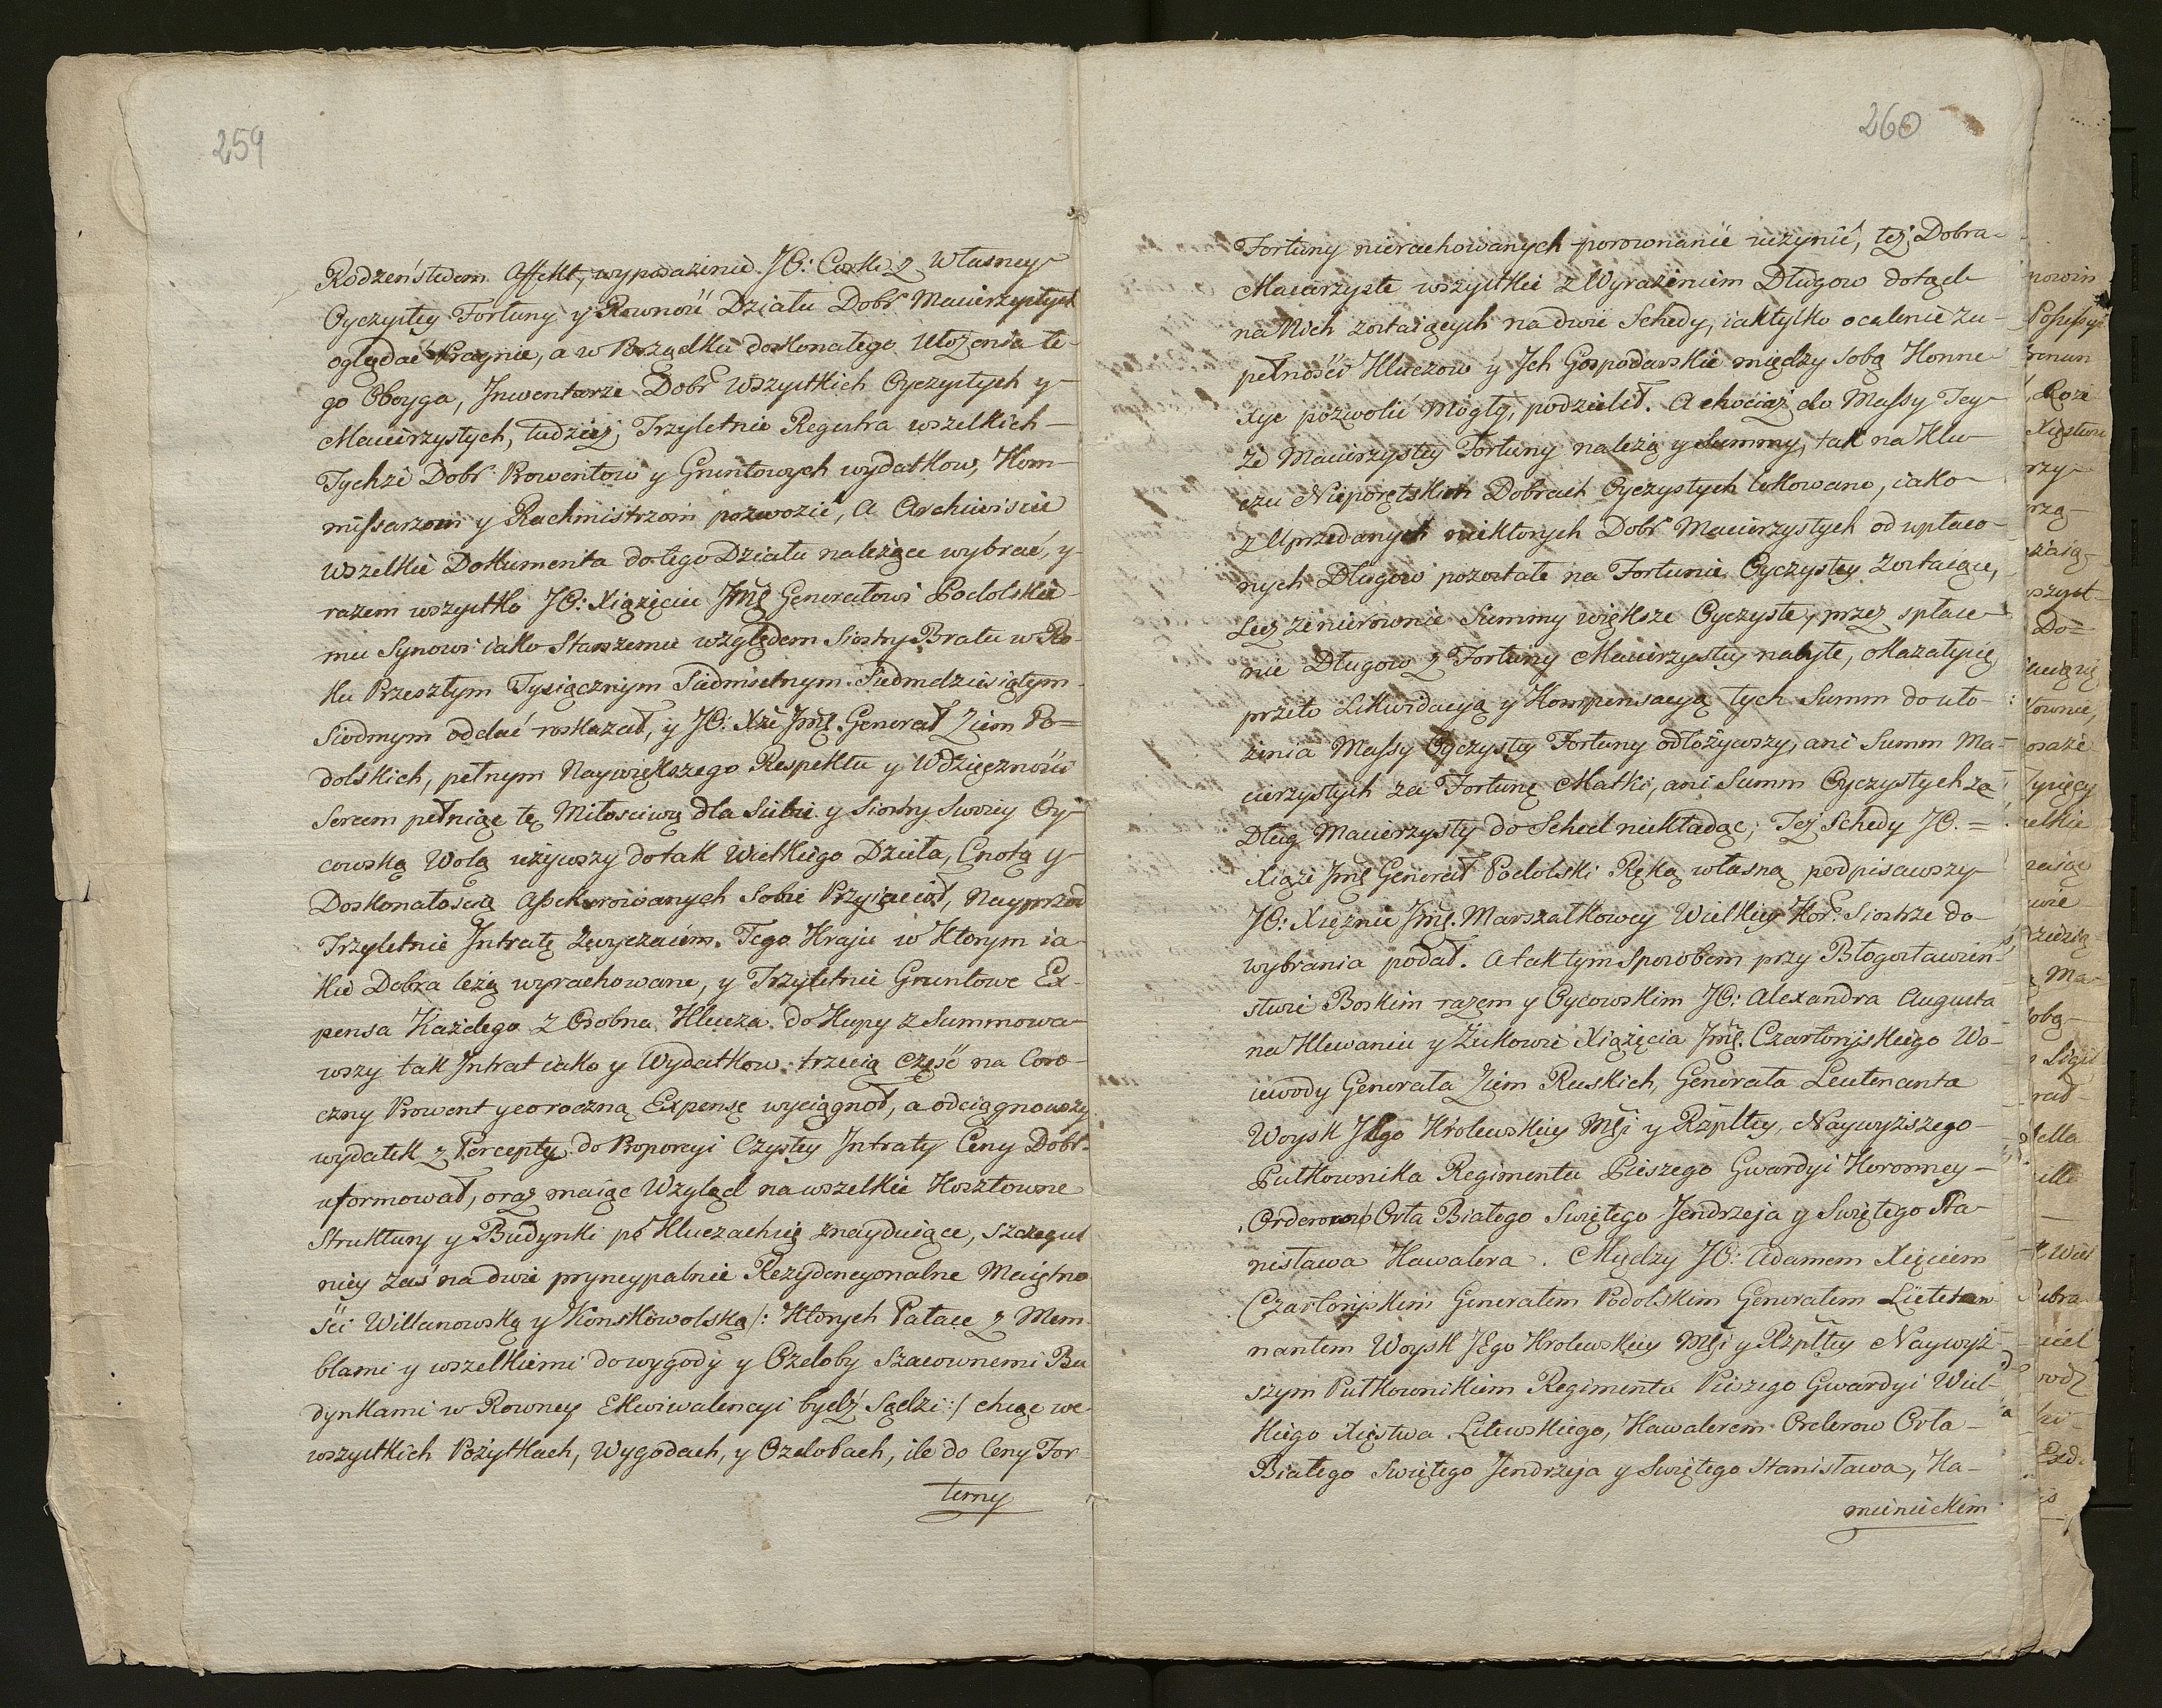 259
Rodzeństwem Affekt, wyposażenie JO: Corki z Własney
Oyczystey Fortuny y Rowność Działu Dobr Macierzystych
oglądać Pragnie, a w Porządku doskonałego Ułożenia te-
go Oboyga, Inwentarze Dobr wszystkich Oyczystych y
Macierzystych, tudzież Trzyletnie Regestra wszelkich
Tychże Dobr Prowentow y Gruntowych wydatkow, Kom-
missarzom y Rachmistrzom pozwozić, a Archiwiście
wszelkie Dokumenta do tego Działu należące wybrać, y
razem wszystko JO: Xiążęciu Jmę Generałowi Podolskie-
mu Synowi iako Starszemu względem Siostry Bratu w Ro-
ku Przeszłym Tysiącznym Siedmsetnym Siedmdziesiątym
Siodmym oddać roskazał, y JO: Xże Jmę. Generał Ziem Po=
dolskich, pełnym Naywiększego Respektu y Wdzięczności
Sercem pełniąc tę Miłosciwą dla Siebie y Siostry Swoiey Oy-
cowską Wolą używszy do tak Wielkiego Dzieła, Cnotą y
Doskonałością Assekurowanych Sobie Przyiacioł, Nayprzod
Trzyletnie Intratę Zwyczaiem Tego Kraju w ktorym ia-
kie Dobra leżą wyrachowane, y Trzyletnie Gruntowe Ex-
pensa Każdego z Osobna Klucza do Kupy z Summowa-
wszy tak Intrat iako y Wydatkow trzecią część na Coro-
czny Prowent y coroczną Expensę wyciągnoł, a odciągnowszy
wydatek z Percepty do Proporcyi Czystey Intraty Ceny Dobr
uformował, oraz maiąc Wzgląd na wszelkie Kosztowne
Struktury y Budynki po Kluczach się znayduiące, Szczegul
niey zaś na dwie pryncypalnie Rezydencyonalne Maiętno
ści Willanowską y Konskowolską /: Ktorych Pałace z Mem-
blami y wszelkiemi do wygody y Ozdoby Szacownemi Bu
dynkami w Rowney Ekwiwalencyi bydź Sądzi :/ chcąc we
wszystkich Pożytkach, Wygodach, y Ozdobach, ile do Ceny For-
tuny
260
Fortuny nierachowanych porownanie uczynić, też Dobra
Macierzyste wszystkie z Wyrażeniem Długow dotąd
na Nich zostaiących na dwie Schedy, iak tylko ocalenie zu-
pełności Kluczow y Ich Gospodarskie między sobą Konne-
xye pozwolić mogły, podzielił. A chociaż do Massy Tey-
że Macierzystey Fortuny należą y Summy, tak na Klu-
czu Nieporętskich Dobrach Oyczystych lokowane, iako
z Uprzedanych niektorych Dobr Macierzystych od wpłaco-
nych Długow pozostałe na Fortunie Oyczystey zostaiące,
Lecz że nierownie Summy większe Oyczyste, przez spłace-
nie Długow z Fortuny Macierzystey nabyte, okazały się
przeto Likwidacyą y Kompensacyą tych Summ do uło-
żenia Massy Oyczystey Fortuny odłożywszy, ani Summ Ma-
cierzystych za Fortunę Matki, ani Summ Oyczystych za
Dług Macierzysty do Sched niekładąc, Też Schedy JO. =
Xiąże Jmę Generał Podolski Ręką własną podpisawszy
JO: Xiężnie Jmę. Marszałkowey Wielkiey Kor: Siostrze do
wybrania podał. A tak tym Sposobem przy Błogosławień-
stwie Boskim razem y Oycowskim JO: Alexandra Augusta
na Klewaniu y Zukowie Xiążęcia Jmę. Czartoryskiego Wo-
iewody Generała Ziem Ruskich, Generała Leutenanta
Woysk JEgo Krolewskiey Mći y Rzpltey, Naywyższego
Pułkownika Regimentu Pieszego Gwardyi Koronney
Orderow Orła Białego Swiętego Jendrzeja y Swiętego Sta-
nisława Kawalera. Między JO: Adamem Xięciem
Czartoryskim Generałem Podolskim Generałem Lieute
nantem Woysk JEgo Krolewskiey Mći y Rzpltey Naywyż
szym Pułkownikiem Regimentu Pieszego Gwardyi Wiel-
kiego Xięstwa Litewskiego, Kawalerem Orderow Orła
Białego Swiętego Jendrzeja y Swiętego Stanisława, Ka-
mienieckim